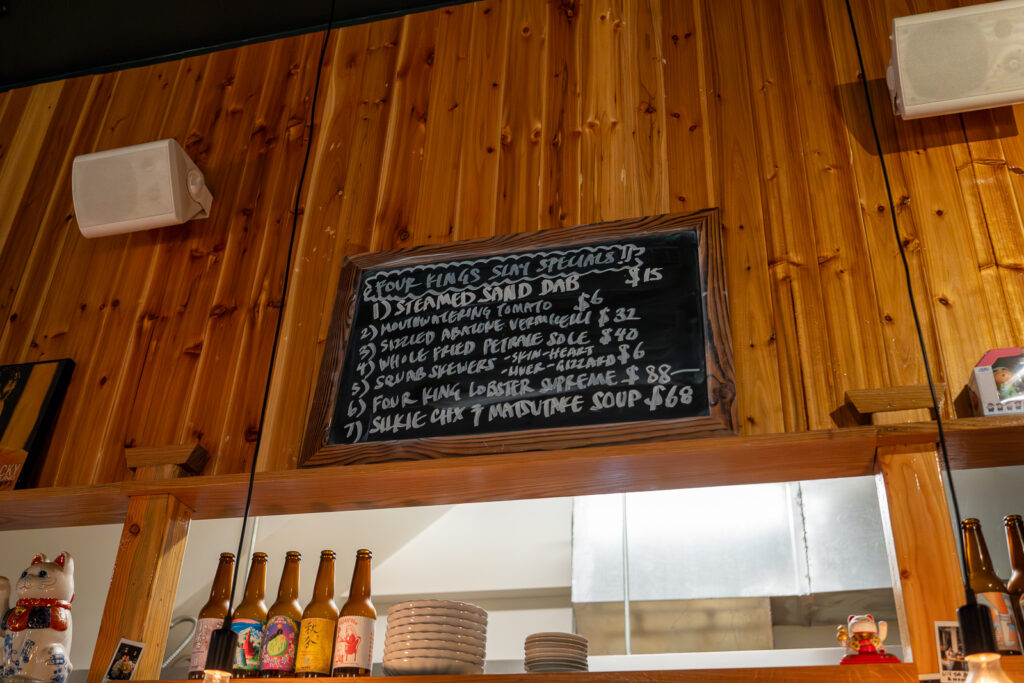 FOUR KINGS SLAY SPECIALS!!
1) STEAMED SAND DAB $15
2) MOUTHWATERING TOMATO $6
3) SIZZLED ABALONE VERMICELLI $32
4) WHOLE FRIED PETRALE SOLE $40
5) SQUAB SKEWERS -SKIN-HEART $6
-LIVER-GIZZARD
6) FOUR KING LOBSTER SUPREME $88—
7) SILKIE CHX & MATSUTAKE SOUP $68
CKY
秋冬